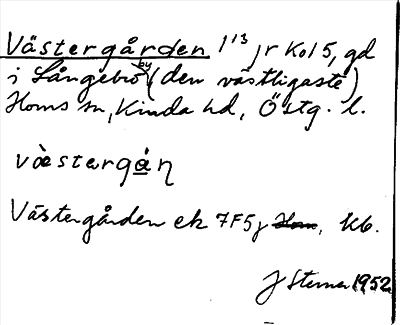 Västergården 1/13 jr Kol 5, gd
i Långebro by (den västligaste)
Horns sn, Kinda hd, Östg. l.
Västergården ek 7F5j Horn, kb.
J Sterner 1952